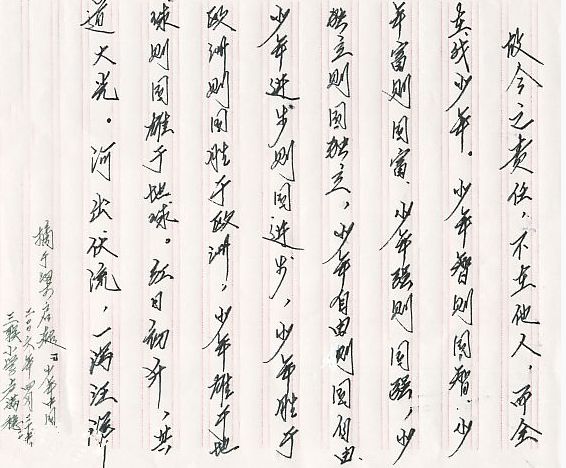 故今之责任，不在他人，而全
在我少年。少年智则国智，少
年富则国富，少年强则国强，少
年独立则国独立，少年自由则国自由，
少年进步则国进步，少年胜于
欧洲则国胜于欧洲，少年雄于地
球则国雄于地球。红日初升，其
道大光。河出伏流，一泻汪洋
摘于梁启超《少年中国
二00六年四月
三联小学